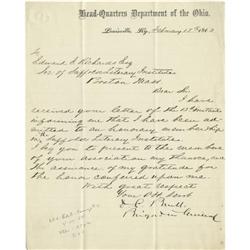 Head-Quarters Department of the Ohio.
Louisville, Ky, February 17th 1862
To
Edward S. Richards Esq
Sec. of Suffolk Literary Institute
Boston Mass
Dear Sir
I have
received your letter of the 12th instant
informing me that I have been ad-
mitted to an honorary membership
in Suffolk Literary Institute
I beg you to present to the members
of your association my thanks, and
the assurance of my gratitude for
the honor conferred upon me.
With great respect
Your Obt Servt
D. C. Buell
Brigadier General